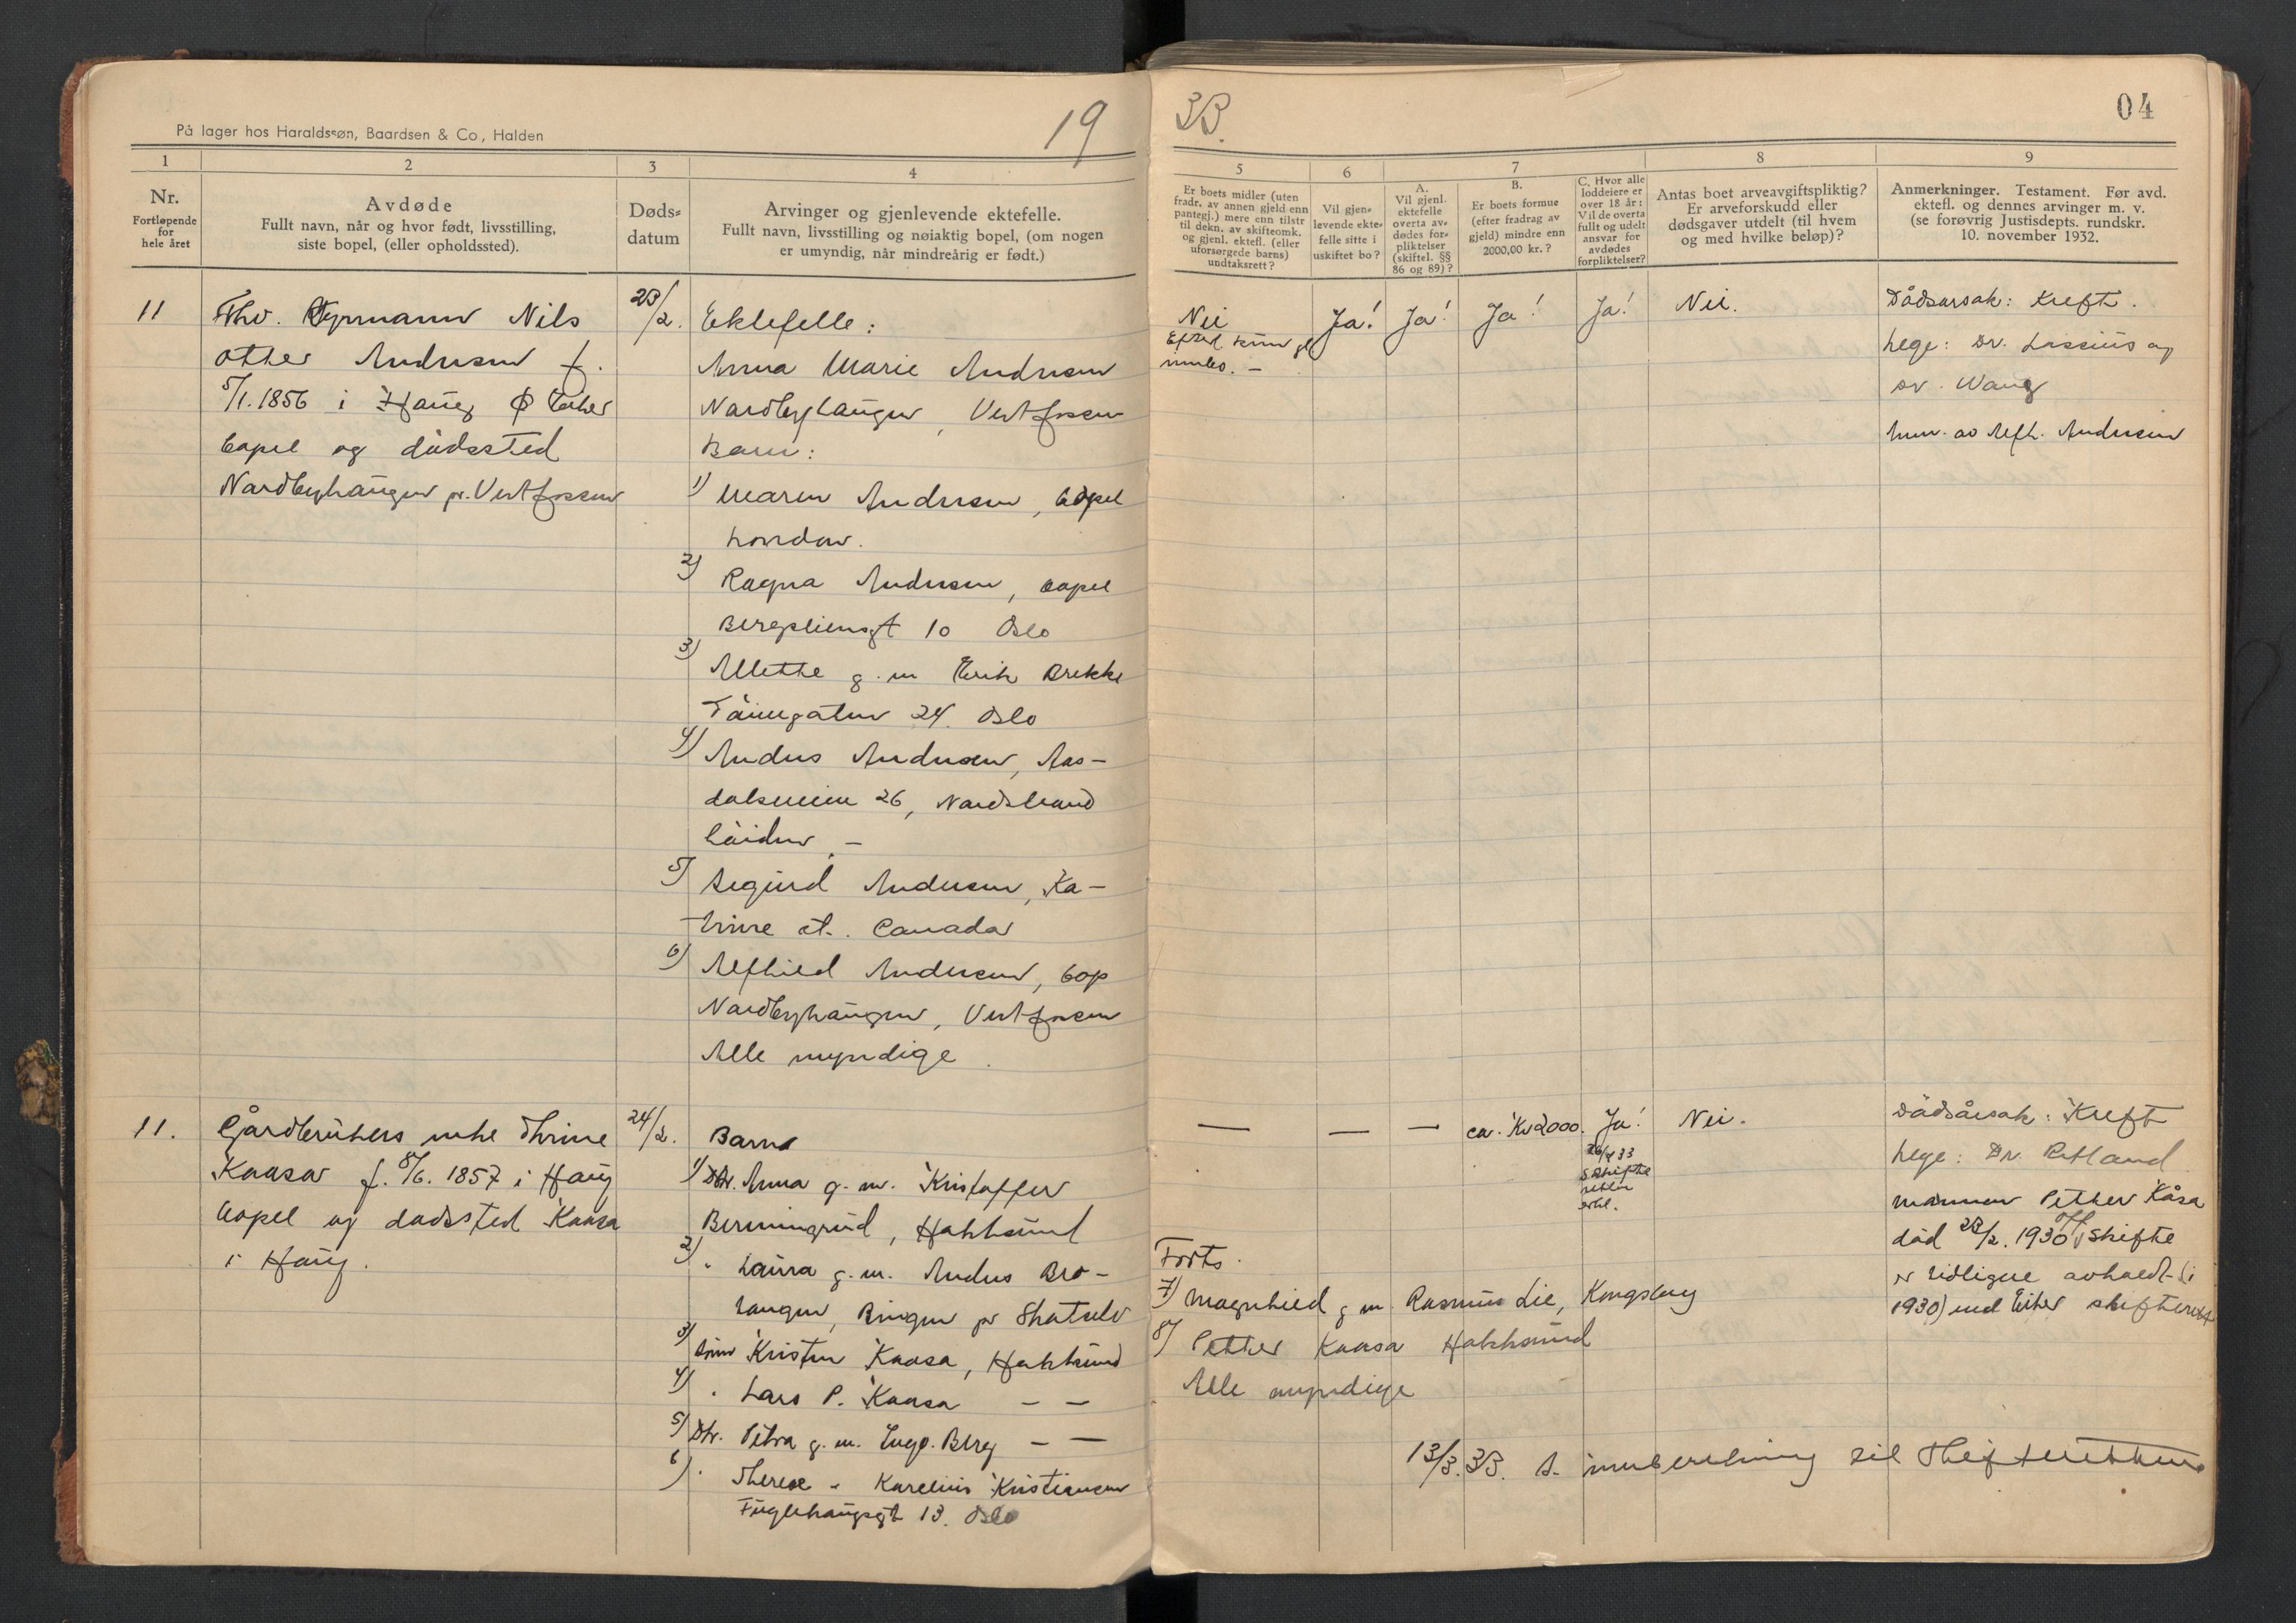 På lager hos Haraldssøn, Baardsen & Co., Halden
19
33.
04
1
2
3
4
5
6
7
8
9
Nr.
Fortløpende
for
hele året
Avdøde
Fullt navn, når og hvor født, livsstilling,
siste bopel, (eller opholdssted).
Døds-
datum
Arvinger og gjenlevende ektefelle.
Fullt navn, livsstilling og nøiaktig bopel, (om nogen
er umyndig, når mindreårig er født.)
Er boets midler (uten
fradr. av annen gjeld enn
pantegj.) mere enn tilstr
til dekn. av skifteomk.
og gjenl. ektefl. (eller
uforsørgede barns)
undtaksrett?
Vil gjen-
levende ekte-
felle sitte i
uskiftet bo?
A.
Vil gjenl.
ektefelle
overta av-
dødes for-
pliktelser
(skiftel. §§
86 og 89)?
B.
Er boets formue
(efter fradrag av
gjeld) mindre enn
2000,00 kr.?
C. Hvor alle
loddeiere er
over 18 år:
Vil de overta
fullt og udelt
ansvar for
avdødes
forpliktelser?
Antas boet arveavgiftspliktig?
Er arveforskudd eller
dødsgaver utdelt (til hvem
og med hvilke beløp)?
Anmerkninger. Testament. Før avd.
ektefl. og dennes arvinger m. v.
(se forøvrig Justisdepts. rundskr.
10. november 1932.
11
Fhv. Nils
Otter Andersen f.
5/1. 1856 i Haug Ø Eiker
bopel og dødssted
Nordbyhaugen pr. Vestfossen
23/2.
Ektefelle:
Anna Marie Andersen
Nordbyhaugen, Vestfossen
Barn:
1) Maren Andersen, bopel
London.
2) Ragna Andersen, bopel
Bergsliensgt 10 Oslo
3) Alette g. m Erik Brekke
Tøiengaten 24. Oslo
4) Anders Andersen, Aas-
dalsveien 26, Nordstrand
høiden. -
5) Sigurd Andersen, Ka-
trine st. Canada
6) Alfhild Andersen, bop
Nordbyhaugen, Vestfossen
Alle myndige
Nei
Efterl. kun gl
innbo. -
Ja!
Ja!
Ja!
Ja!
Nei.
Dødsårsak: Kreft.
Lege: Dr. Lassius og
Dr. Wang
Inn. av Alfh. Andersen
11.
Gårdbrukers enke Thrine
Kaasa f. 8/6. 1857 i Haug
bopel og dødssted Kaasa
i Haug.
24/2.
Barn
1) Dtr. Anna g. m. Kristoffer
Bermingrud, Hokksund
2) " Laura g. m. Anders Bro-
haugen, Bingen pr Skotselv
3) Sønn Kristen Kaasa, Hokksund
4) " Lars P. Kaasa - -
5) Dtr. Petra g. m. Enge. Berg - -
6) " Therese " Karelius Kristiansen
Fuglehaugsgt 13. Oslo
—
—
—
ca. Kr 2000.
Ja!
Skifte
retten
erkl.
Nei.
Dødsårsak: Kreft
Lege: Dr. Rutland
mannen Petter Kåsa
død 23/2. 1930 Off. Skifte
er tidligere avholdt (i
1930) ved Eiker skifterett
Forts.
7) Magnhild g m. Rasmus Lie, Kongsberg
8) Petter Kaasa Hokksund
Alle myndige
13/3. 33. S. innberetning til Skifteretten